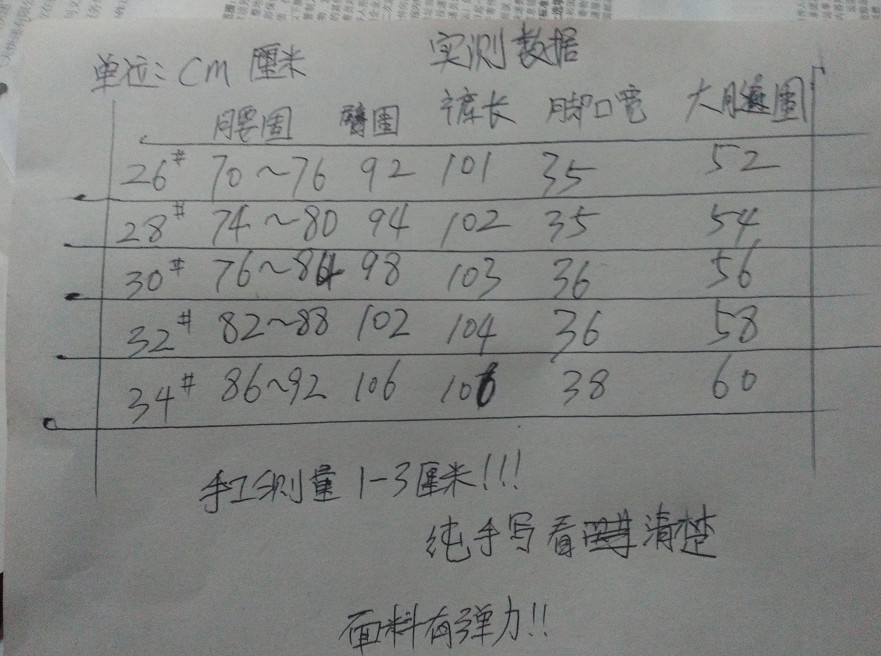 实测数据
单位：CM 厘米
腰围 臀围 裤长 脚口宽 大腿围
26# 70~76 92 101 35 52
28# 74~80 94 102 35 54
30# 76~84 98 103 36 56
32# 82~88 102 104 36 58
34# 86~92 106 106 38 60
手工测量 1-3厘米!!!
纯手写看清楚
面料有弹力!!